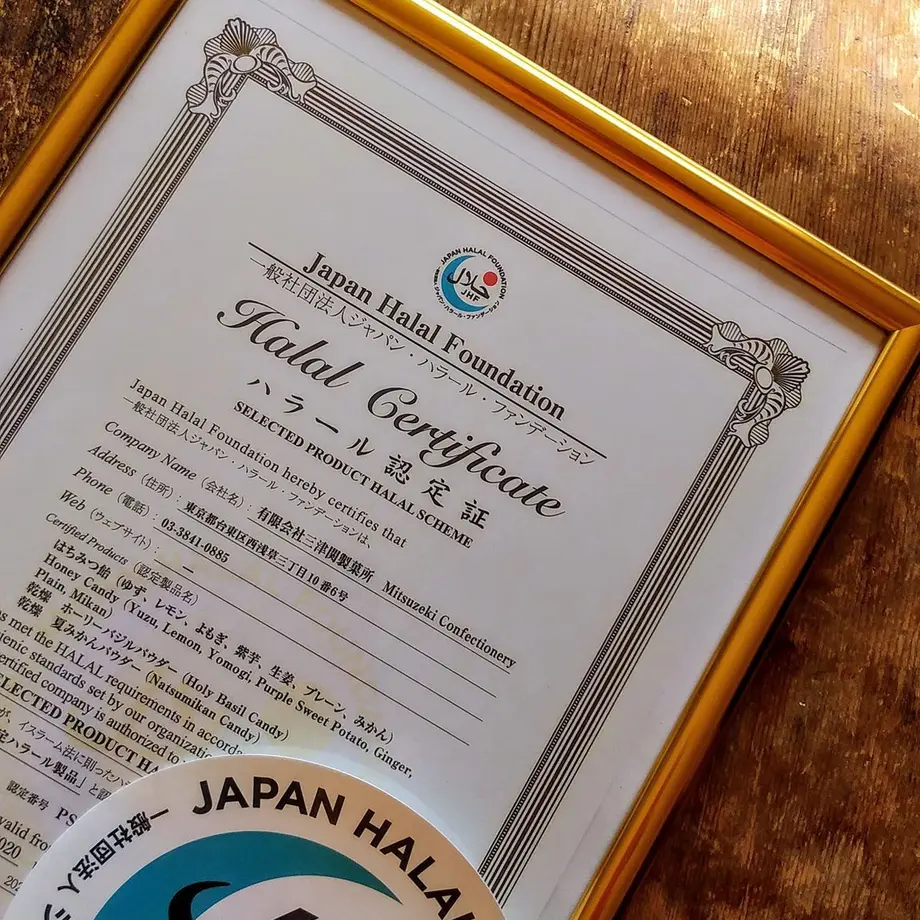 JAPAN HALAL FOUNDATION
حلال
JHF
一般社団法人ジャパン・ハラール・ファンデーション
Japan Halal Foundation
一般社団法人ジャパン・ハラール・ファンデーション
Halal Certificate
ハラール認定証
SELECTED PRODUCT HALAL SCHEME
Japan Halal Foundation hereby certifies that
一般社団法人ジャパン・ハラール・ファンデーションは、
Company Name (会社名) : 有限会社三津関製菓所 Mitsuzeki Confectionery
Address (住所) : 東京都台東区西浅草三丁目10番6号
Phone (電話) : 03-3841-0885
Web (ウェブサイト) : ー
Certified Products (認定製品名)
はちみつ飴 (ゆず、レモン、よもぎ、紫芋、生姜、プレーン、みかん)
Honey Candy (Yuzu, Lemon, Yomogi, Purple Sweet Potato, Ginger,
Plain, Mikan)
乾燥 ホーリーバジルパウダー (Holy Basil Candy)
乾燥 夏みかんパウダー (Natsumikan Candy)
s met the HALAL requirements in accorda
ienic standards set by our organization
ertified company is authorized to
SELECTED PRODUCT HA
が、イスラーム法に則ったハラ
定ハラール製品」と認
認定番号 PS
valid fro
020
202
JAPAN HALAL
一般社団法人